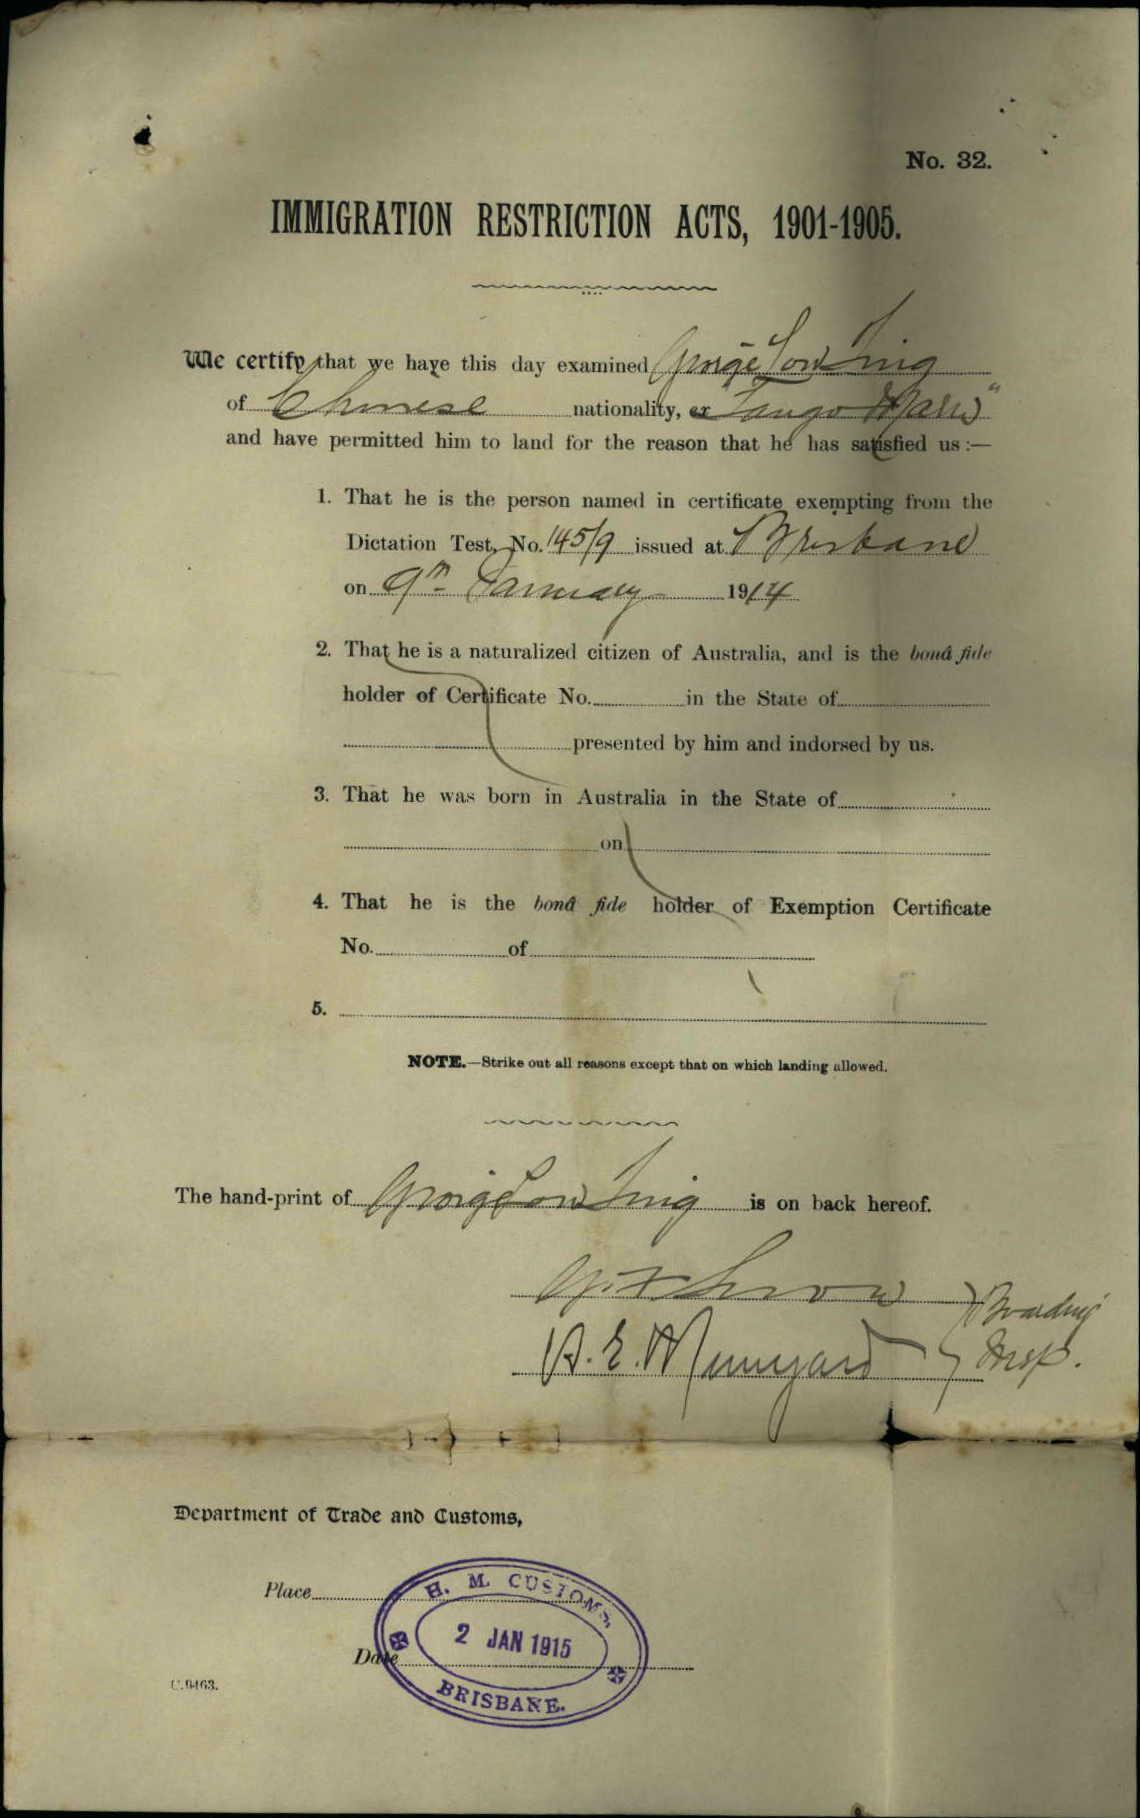 No. 32.
IMMIGRATION RESTRICTION ACTS, 1901-1905.
We certify that we have this day examined George Low Ting
of Chinese nationality, ex "Tango Maru"
and have permitted him to land for the reason that he has satisfied us :—
1. That he is the person named in certificate exempting from the
Dictation Test, No. 145/9 issued at Brisbane
on 9th January 1914
2. That he is a naturalized citizen of Australia, and is the bonâ fide
holder of Certificate No. in the State of
presented by him and indorsed by us.
3. That he was born in Australia in the State of
on
4. That he is the bonâ fide holder of Exemption Certificate
No. of
5.
NOTE.—Strike out all reasons except that on which landing allowed.
The hand-print of George Low Ting is on back hereof.
Boarding
A. E. Insp.
Department of Trade and Customs,
Place
H. M. CUSTOMS,
2 JAN 1915
Date
BRISBANE.
C.9463.